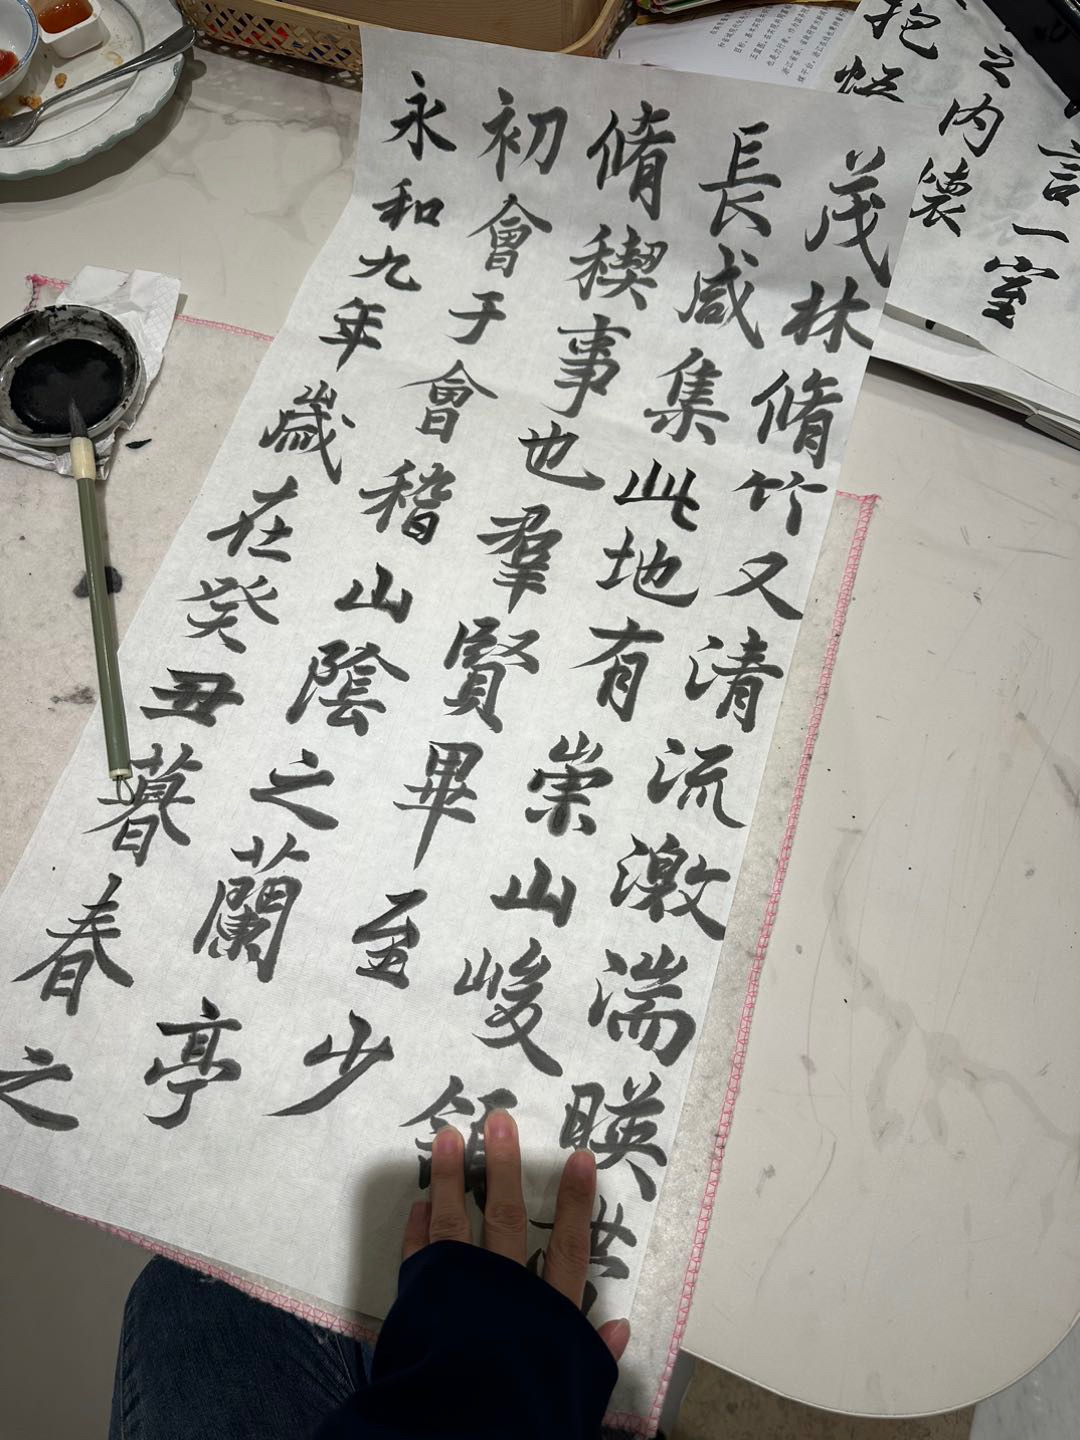 永和九年歲在癸丑暮春之
初會于會稽山陰之蘭亭
脩稧事也羣賢畢至少
長咸集此地有崇山峻領
茂林脩竹又清流激湍暎
抱
之內懷
言一室